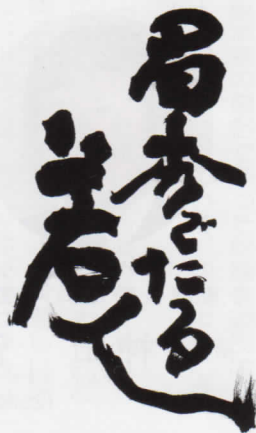 眉秀でたる
若人